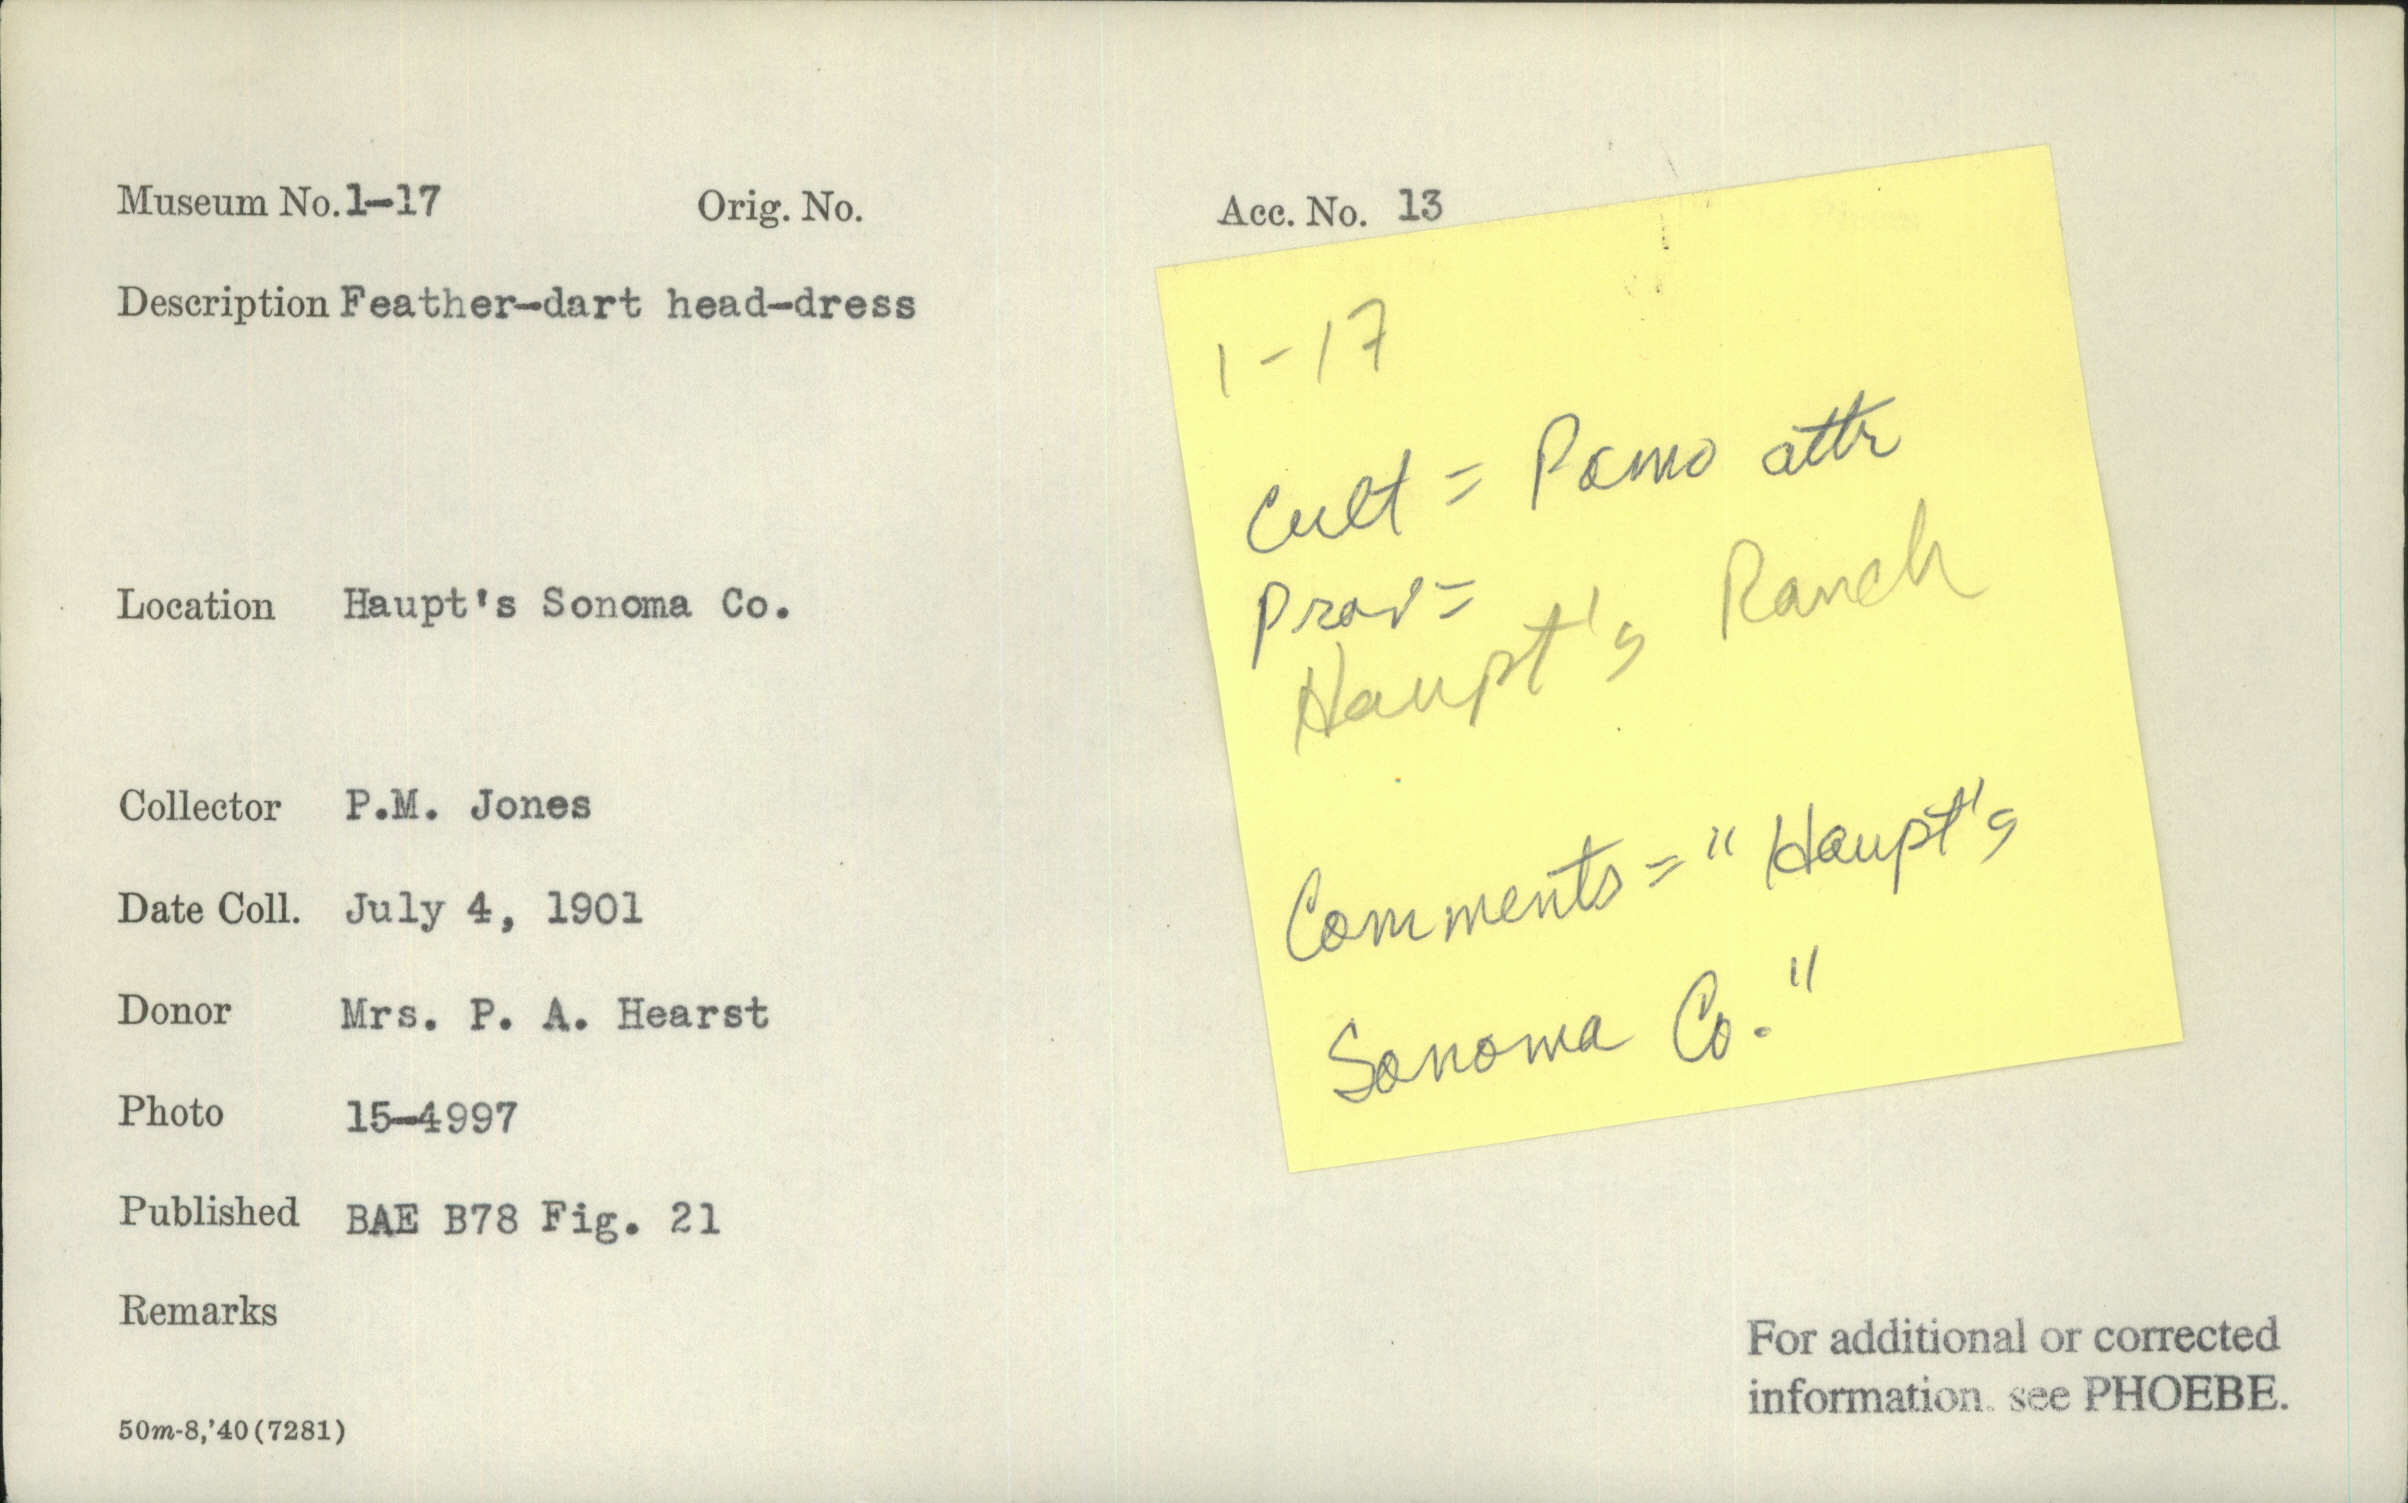 Museum No. 1-17 Orig. No. Acc. No. 13
Description Feather-dart head-dress
Location Haupt's Sonoma Co.
Collector P.M. Jones
Date Coll. July 4, 1901
Donor Mrs. P. A. Hearst
Photo 15-4997
Published BAE B78 Fig. 21
Remarks
50m-8,'40(7281)
1-17
Cult = Pomo attr
Prov =
Haupt's Ranch
Comments = "Haupt's
Sonoma Co."
For additional or corrected
information. see PHOEBE.